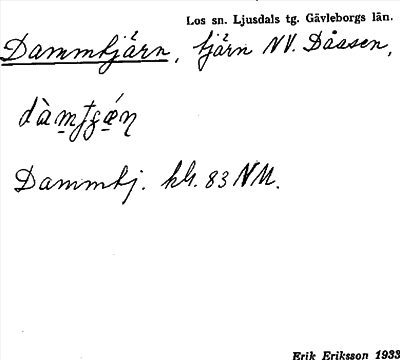 Los sn. Ljusdals tg. Gävleborgs län.
Dammtjärn, tjärn NV. Dåasen,
Dammtj. kh. 83 NM.
Erik Eriksson 1933